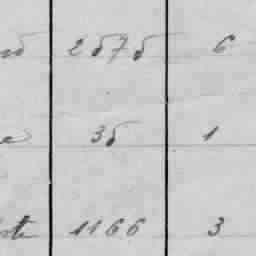 2575 6
35 1
1166 3